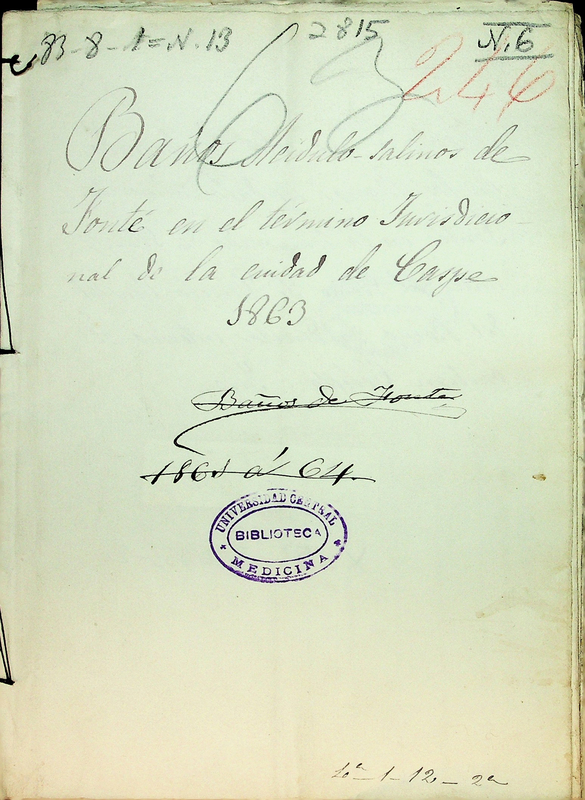 83-8-1=N.13
2815
N.6
246
Baños Acidulo-salinos de
Fonté en el término Jurisdicio-
nal de la ciudad de Caspe
1863
Baños de Fonté
1863 á 64.
UNIVERSIDAD CENTRAL
BIBLIOTECA
MEDICINA
1-12-2ª